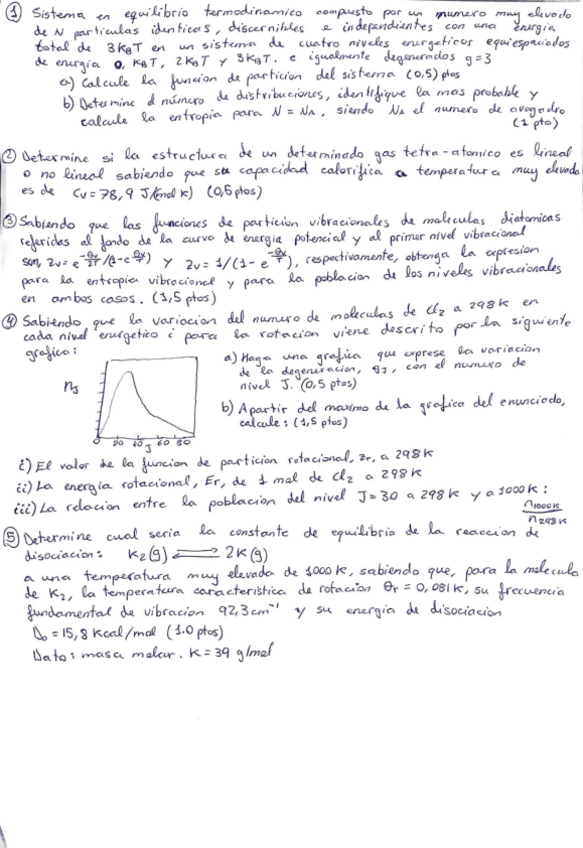 ① Sistema en equilibrio termodinamico compuesto por un numero muy elevado
de N particulas identicas, discernibles e independientes con una energia
total de 3KBT en un sistema de cuatro niveles energeticos equiespaciados
de energia 0, KBT, 2KBT y 3KBT. e igualmente degenerados g=3
a) Calcule la funcion de particion del sistema (0,5) ptos
b) Determine el número de distribuciones, identifique la mas probable y
calcule la entropia para N = NA, siendo NA el numero de avogadro
(1 pto)
② Determine si la estructura de un determinado gas tetra-atomico es lineal
o no lineal sabiendo que su capacidad calorifica a temperatura muy elevada
es de Cv=78,9 J/(mol K) (0,5 ptos)
③ Sabiendo que las funciones de particion vibracionales de moleculas diatomicas
referidas al fondo de la curva de energia potencial y al primer nivel vibracional
son, zv = e^(-θv/2T)/(1-e^(-θv/T)) y zv = 1/(1-e^(-θv/T)), respectivamente, obtenga la expresion
para la entropia vibracional y para la poblacion de los niveles vibracionales
en ambos casos. (1,5 ptos)
④ Sabiendo que la variacion del numero de moleculas de Cl2 a 298K en
cada nivel energetico i para la rotacion viene descrito por la siguiente
grafica:
a) Haga una grafica que exprese la variacion
de la degeneracion, gJ, con el numero de
nivel J. (0,5 ptos)
b) A partir del maximo de la grafica del enunciado,
calcule: (1,5 ptos)
nJ
0 20 40 60 80
J
i) El valor de la funcion de particion rotacional, zr, a 298K
ii) La energia rotacional, Er, de 1 mol de Cl2 a 298K
iii) La relacion entre la poblacion del nivel J=30 a 298K y a 1000K:
n1000K/n298K
⑤ Determine cual seria la constante de equilibrio de la reaccion de
disociacion: K2(g) ⇌ 2K(g)
a una temperatura muy elevada de 1000K, sabiendo que, para la molecula
de K2, la temperatura caracteristica de rotacion θr = 0,081K, su frecuencia
fundamental de vibracion 92,3cm⁻¹ y su energia de disociacion
D0 = 15,8 Kcal/mol (1.0 ptos)
Dato: masa molar. K = 39 g/mol